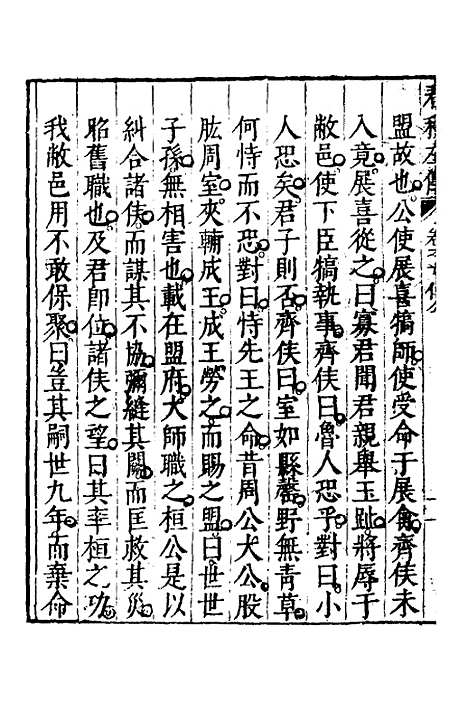 盟故也公使展喜犒師使受命于展禽齊侯未
入竟展喜從之曰寡君聞君親舉玉趾將辱于
敝邑使下臣犒執事齊侯曰魯人恐乎對曰小
人恐矣君子則否齊侯曰室如縣罄野無青草
何恃而不恐對曰恃先王之命昔周公大公股
肱周室夾輔成王成王勞之而賜之盟曰世世
子孫無相害也載在盟府大師職之桓公是以
糾合諸侯而謀其不協彌縫其闕而匡救其災
昭舊職也及君即位諸侯之望曰其率桓之功
我敝邑用不敢保聚曰豈其嗣世九年而棄命